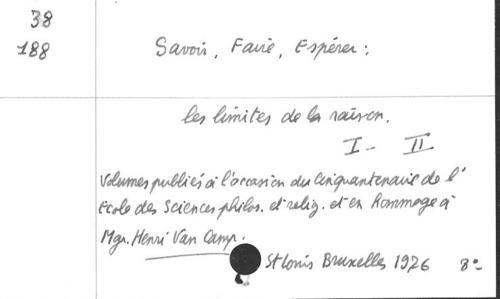 38
188
Savoir, Faire, Espérer :
les limites de la raison.
I - II
Volumes publiés à l'occasion du Cinquantenaire de l'
Ecole des Sciences philos. et relig. et en Hommage à
Mgr. Henri Van Camp.
St Louis Bruxelles 1976 8°